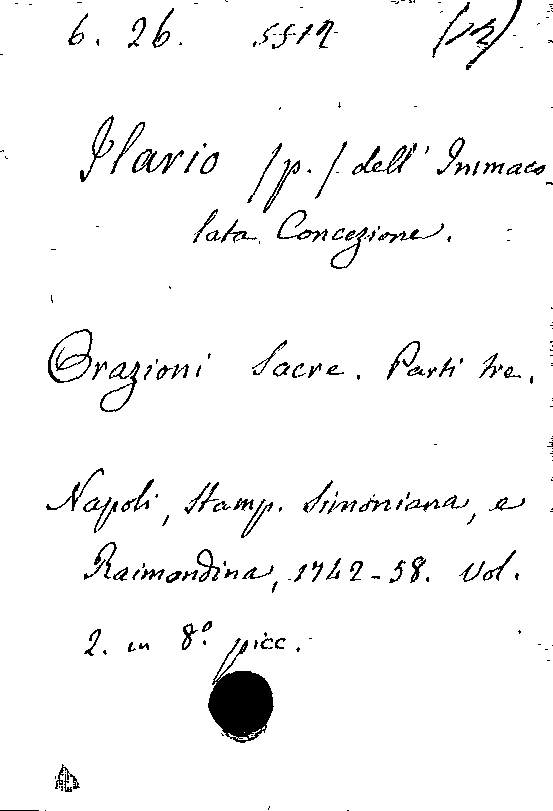 6. 26. 5512 (13)
Ilario /p./ dell' Immaco-
lata Concezione.
Orazioni Sacre. Parti tre.
Napoli, Stamp. Simoniana, e
Raimondina, 1742-58. Vol.
2. in 8.° picc.